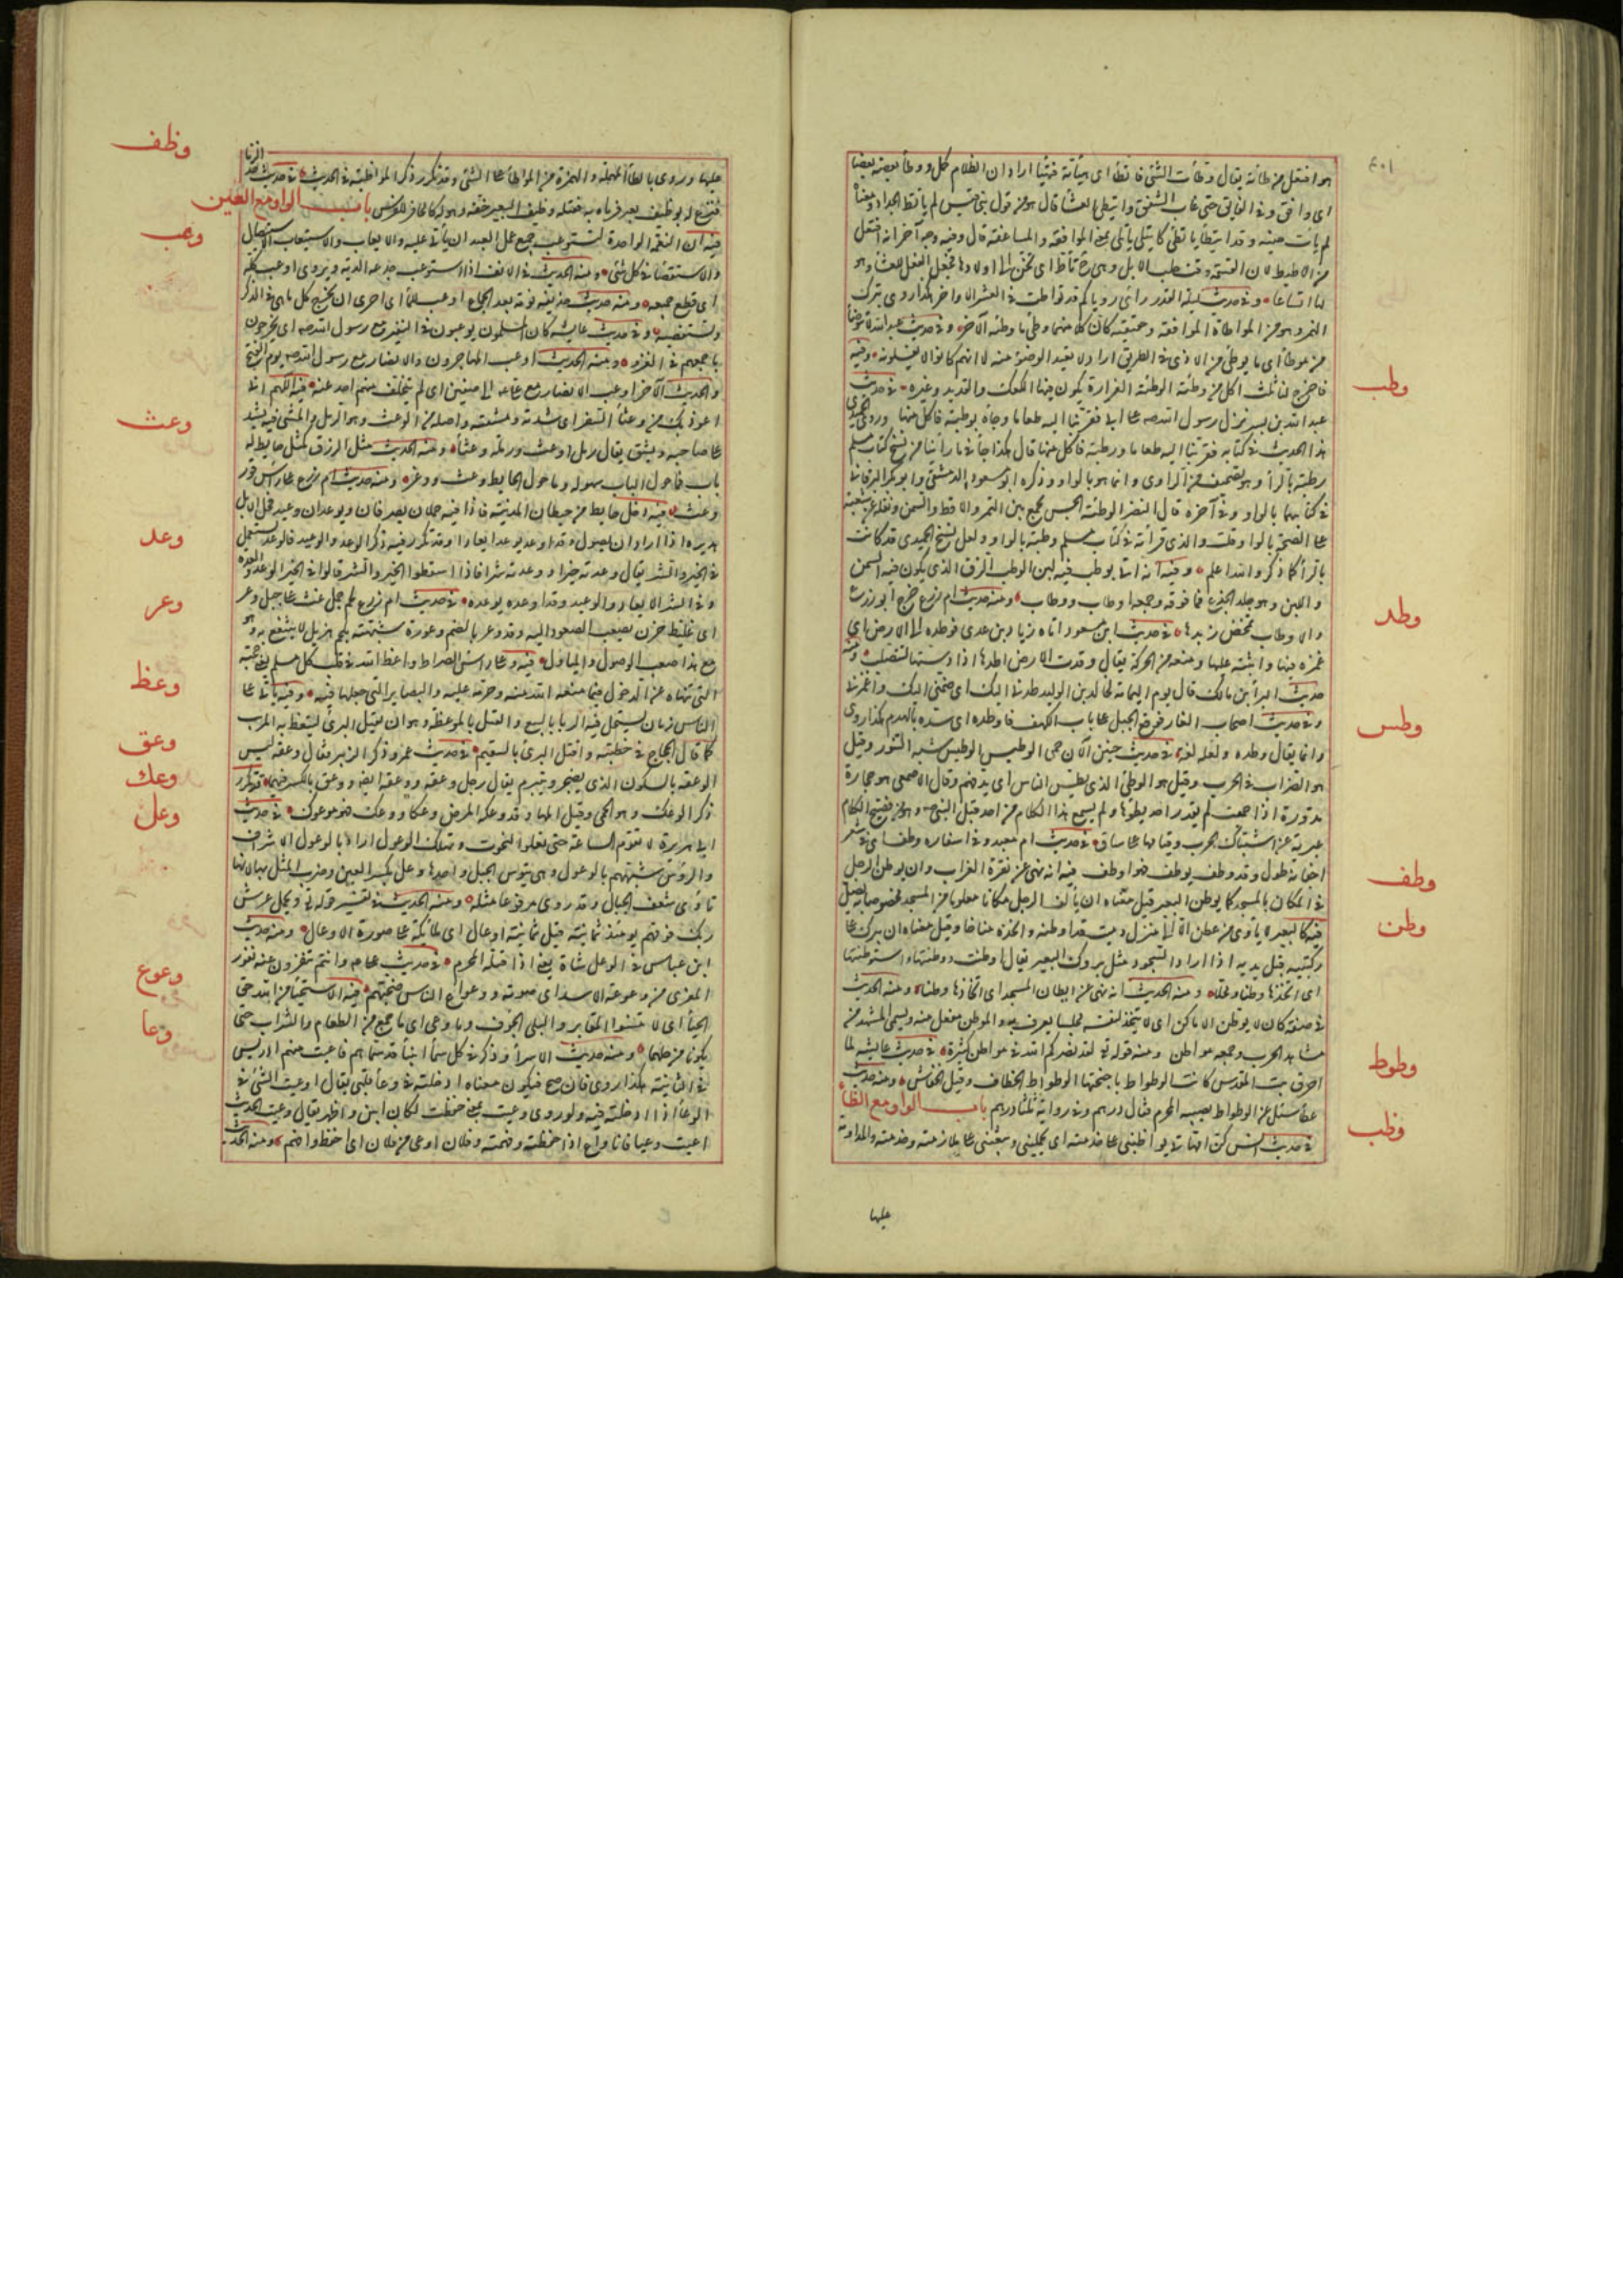 ٤٠١
هو افتعل من وطأته يقال وطأت الشئ فاتطأ اى هيأته فتهيأ اراد ان الظلام كمل وواطأ بعضه بعضا
اى وافق وفى الفايق حتى غاب الشفق وايتطى العشا قال هو من قول بنى قيس لم يأتط الجداد ومعناه
لم يأت حينه وقد ايتطا ياتطى كايتلى ياتلى بمعنى الموافقة والمساعفة قال وفيه وجه آخر انه افتعل
لها اتساعا وفى حديث ليلة القدر ارى رؤياكم قد تواطت فى العشر الاواخر هكذا روى بترك
الهمز وهو من المواطاة الموافقة وحقيقته كان كلا منهما وطئ ما وطئه الآخر وفى حديث عبدالله لا نتوضأ
من موطأ اى ما يوطئ من الاذى فى الطريق اراد لا نعيد الوضوء منه لا انهم كانوا لا يغسلونه وفيه
وطب
فاخرج الينا ثلث اكل من وطئة الوطئة الغرارة يكون فيها الكعك والقديد وغيره فى حديث
عبد الله بن بسر نزل رسول الله صه على ابى فقربنا اليه طعاما وجاه بوطبة فاكل منها وروى الحميدى
هذا الحديث فى كتابه فقربنا اليه طعاما ورطبة فاكل منها قال هكذا جا فيما رأينا من نسخ كتاب مسلم
رطبة بالرأ وهو تصحيف من الراوى وانما هو بالواو وذكره ابو مسعود الدمشقى وابو بكر البرقانى
فى كتابيهما بالواو وفى آخره قال النضر الوطبة الحيس يجمع بين التمر والاقط والسمن ونقله عن شعبة
على الصحة بالواو قلت والذى قرأته فى كتاب مسلم وطبة بالواو ولعل نسخ الحميدى قد كانت
بالرأ كما ذكر والله اعلم وفيه انه اتى بوطب فيه لبن الوطب الزق الذى يكون فيه السمن
واللبن وهو جلد الجذع فما فوقه وجمعه اوطاب ووطاب ومنه حديث ام زرع خرج ابو زرع
وطد
والاوطاب تمخض زبدها فى حديث ابن مسعود اتاه زياد بن عدى فوطده الى الارض اى
غمزه فيها واثبته عليها ومنعه من الحركة يقال وطدت الارض اطدها اذا دستها لتتصلب ومنه
حديث البرأ بن مالك قال يوم اليمامة لخالد بن الوليد طدنى اليك اى ضمنى اليك واغمزنى
وفى حديث اصحاب الغار فوقع الجبل على باب الكهف فاوطده اى سده بالهدم هكذا روى
وطس
وانما يقال وطده ولعله لغة فى حديث حنين الآن حمى الوطيس الوطيس شبه التنور وقيل
هو الضراب فى الحرب وقيل هو الوطئ الذى يطيس الناس اى يدقهم وقال الاصمعى هو حجارة
مدورة اذا حميت لم يقدر احد يطؤها ولم يسمع هذا الكلام من احد قبل النبى صه وهو من فصيح الكلام
عبر به عن اشتباك الحرب وقيامها على ساق فى حديث ام معبد وفى اشفاره وطف اى فى شعر
وطف
اجفانه طول وقد وطف يوطف فهو اوطف فيه انه نهى عن نقرة الغراب وان يوطن الرجل
فى المكان بالمسجد كما يوطن البعير قيل معناه ان يألف الرجل مكانا معلوما من المسجد مخصوصا به يصلى
وطن
فيه كالبعير لا ياوى من عطن الا الى منزل دمث قد اوطنه واتخذه مناخا وقيل معناه ان يبرك على
ركبتيه قبل يديه اذا اراد السجود مثل بروك البعير يقال اوطنت ووطنتها واستوطنتها
اى اتخذتها وطنا ومحلا ومنه الحديث انه نهى عن ايطان المسجد اى اتخاذها وطنا ومنه الحديث
فى صفته كان لا يوطن الاماكن اى لا يتخذ لنفسه مجلسا يعرف به والموطن مفعل منه ويسمى المشهد من
مشاهد الحرب وجمعه مواطن ومنه قوله تع لقد نصركم الله فى مواطن كثيرة فى حديث عايشه لما
وطوط
احرق بيت المقدس كانت الوطواط باجنحتها الوطواط الخطاف وقيل الخفاش ومنه حديث
عطأ سئل عن الوطواط يصيبه المحرم فقال درهم وفى رواية ثلثا درهم باب الواو مع الظأ
وظب
فى حديث انس كن امهاتى يواظبننى على خدمته اى يحملننى ويبعثننى على ملازمة خدمته والمداومة
عليها
وظف
عليها وروى بالطأ المهملة والهمزة من المواطأة على الشئ وقد تكرر ذكر المواظبة فى الحديث فى حديث حد الزنا
فنزع له بوظيف بعير فرماه به فقتله وظيف البعير خفه وهو له كالحافر للفرس باب الواو مع العين
وعب
فيه ان النعمة الواحدة لتستوعب جميع عمل العبد اى تأتى عليه والايعاب والاستيعاب الاستيصال
والاستقصا فى كل شئ ومنه الحديث فى الانف اذا استوعب جدعه الدية ويروى اوعب كله
اى قطع جميعه ومنه حديث حذيفة نومة بعد الجماع اوعب للمأ اى احرى ان تخرج كل ما بقى فى الذكر
وتستقصيه وفى حديث عايشه كان المسلمون يوعبون فى النفير مع رسول الله صه اى يخرجون
باجمعهم فى الغزو ومنه الحديث اوعب المهاجرون والانصار مع رسول الله صه يوم الفتح
والحديث الآخر اوعب الانصار مع على الى صفين اى لم يتخلف منهم احد عنه فيه اللهم انا
وعث
اعوذ بك من وعثأ السفر اى شدته ومشقته واصله من الوعث وهو الرمل والمشى فيه يشتد
على صاحبه ويشق يقال رمل اوعث ورملة وعثأ ومنه الحديث مثل الرزق كمثل حايط له
باب فما حول الباب سهولة وما حول الحايط وعث ووعر ومنه حديث ام زرع على رأس قور
وعث فيه دخل حايطا من حيطان المدينة فاذا فيه جملان يصرفان ويوعدان وعيد فحل الابل
وعد
هديره اذا اراد ان يصول وقد اوعد يوعد ايعادا وقد تكرر فيه ذكر الوعد والوعيد فالوعد يستعمل
فى الخير والشر يقال وعدته خيرا ووعدته شرا فاذا اسقطوا الخير والشر قالوا فى الخير الوعد والعدة
وعر
وفى الشر الايعاد والوعيد وقد اوعده يوعده فى حديث ام زرع لحم جمل غث على جبل وعر
اى غليظ حزن يصعب الصعود اليه وقد وعر بالضم وعورة شبهته بلحم هزيل لا ينتفع به وهو
مع هذا صعب الوصول والمنال فيه وعلى رأس الصراط واعظ الله فى قلب كل مسلم يعنى حججه
وعظ
التى تنهاه عن الدخول فيما منعه الله منه وحرمه عليه والبصاير التى جعلها فيه وفيه يأتى على
الناس زمان يستحل فيه الربا بالبيع والقتل بالموعظة وهو ان يقتل البرئ ليتعظ به المريب
وعق
كما قال الحجاج فى خطبته واقتل البرئ بالسقيم فى حديث عمر وذكر الزبير فقال وعقة لقس
وعك
الوعقة بالسكون الذى يضجر ويتبرم يقال رجل وعقة ووعقة ايضا ووعق بالكسر فيهما قد تكرر
وعل
ذكر الوعك وهو الحمى وقيل المها وقد وعكه المرض وعكا ووعك فهو موعوك فى حديث
ابى هريرة لا تقوم الساعة حتى تعلو التحوت وتهلك الوعول اراد بالوعول الاشراف
والرؤس شبههم بالوعول وهى تيوس الجبل واحدها وعل بكسر العين وضرب المثل بها لانها
تأوى شعف الجبال وقد روى مرفوعا مثله ومنه الحديث فى تفسير قوله تع ويحمل عرش
ربك فوقهم يومئذ ثمانية قيل ثمانية اوعال اى ملائكة على صورة الاوعال ومنه حديث
ابن عباس فى الوعل شاة يعنى اذا قتله المحرم فى حديث على ع وانتم تنفرون عنه نفور
وعوع
المعزى من وعوعة الاسد اى صوته ووعواع الناس ضجتهم فيه الاستحيأ من الله حق
وعا
الحيأ اى لا تنسوا المقابر والبلى والجوف وما وعى اى ما جمع من الطعام والشراب حتى
يكونا من حلهما ومنه حديث الاسرأ وذكر فى كل سمأ انبيأ قد سماهم فاوعيت منهم ادريس
فى الثانية هكذا روى فان صح فيكون معناه ادخلته فى وعأ قلبى يقال اوعيت الشئ فى
الوعأ اذا ادخلته فيه ولو روى وعيت بمعنى حفظت لكان ابين واظهر يقال وعيت الحديث
اعيه وعيا فانا واع اذا حفظته وفهمته وفلان اوعى من فلان اى احفظ وافهم ومنه الحديث